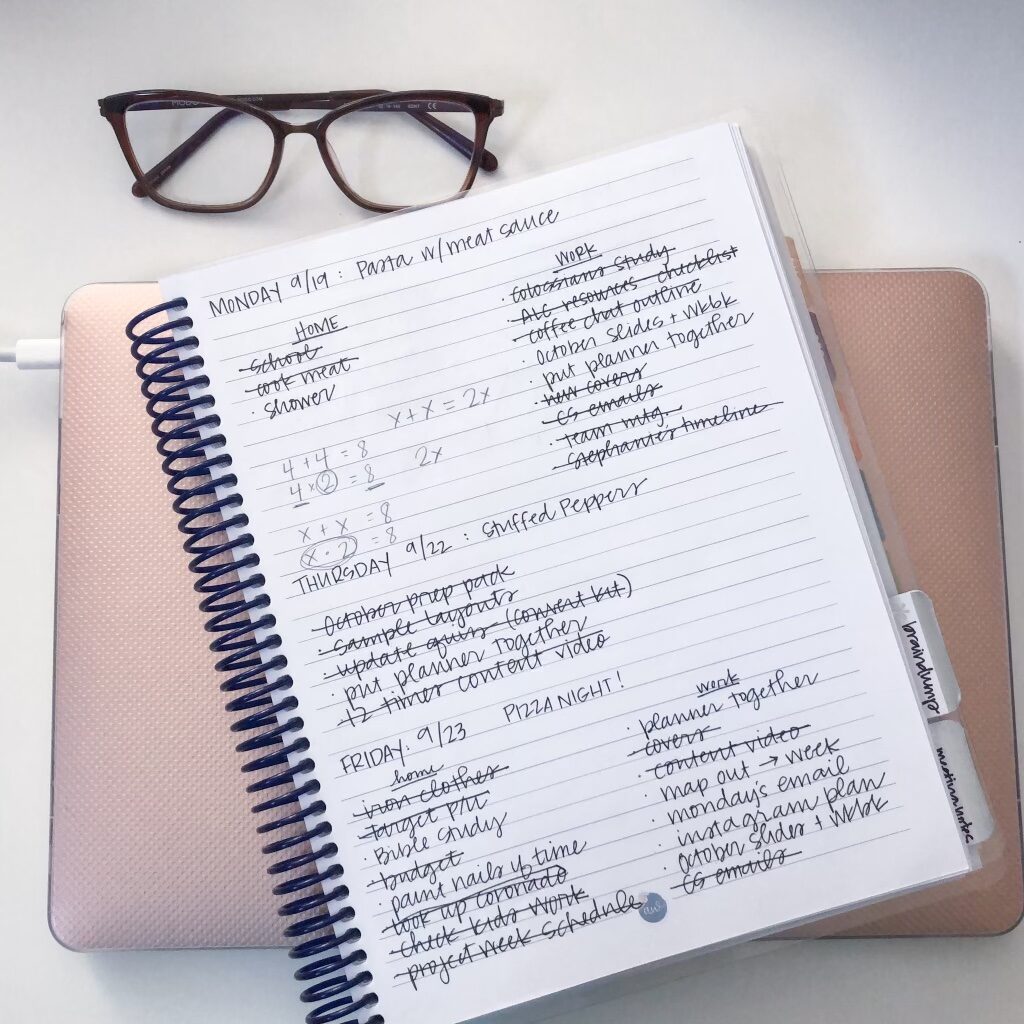 MONDAY 9/19 : Pasta w/meat sauce
HOME
· school
· cook meat
· shower
WORK
· Colossians study
· ALC resources checklist
· coffee chat outline
· October slides + wkbk
· put planner together
· new covers
· CG emails
· team mtg.
· Stephanie's timeline
x + x = 2x
4 + 4 = 8
4 x 2 = 8
2x
x + x = 8
x · 2 = 8
THURSDAY 9/22 : Stuffed Peppers
· October prep pack
· sample layouts
· update quiz (convert kit)
· put planner together
· 12 times content video
FRIDAY: 9/23 PIZZA NIGHT!
home
· iron clothes
· Target P/U
· Bible Study
· budget
· paint nails if time
· look up coronado
· check kids work
· project week schedule
work
· planner together
· covers
· content video
· map out → week
· monday's email
· instagram plan
· October slides + wkbk
· CG emails
braindump
meeting notes